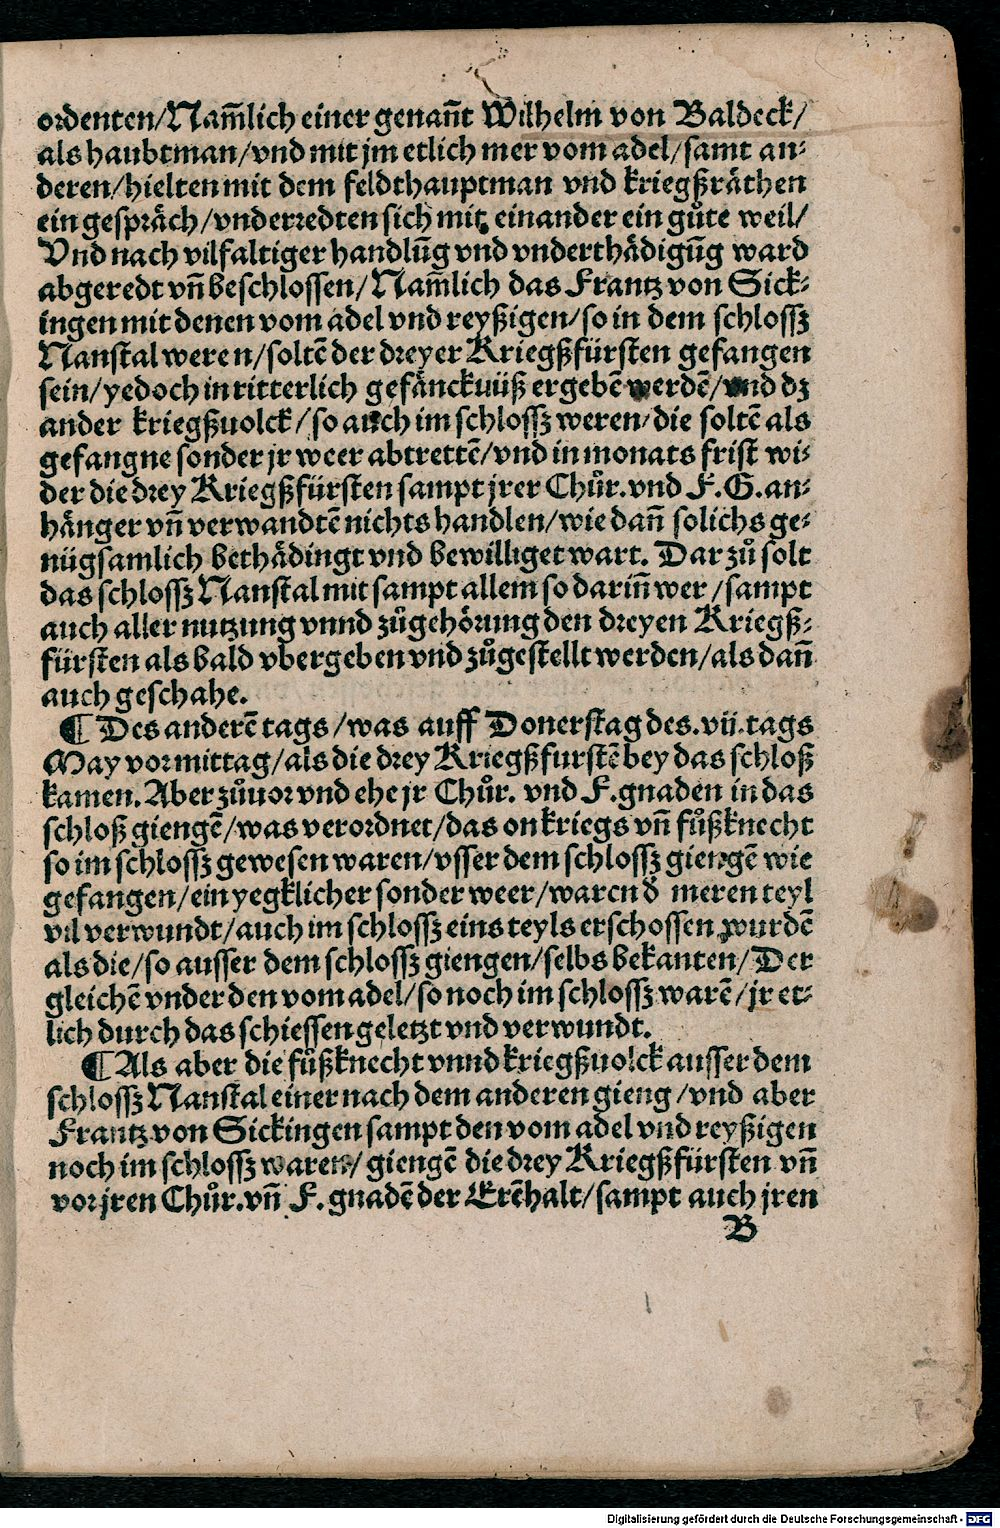 ordenten/Nam̃lich einer genañt Wilhelm von Baldeck/
als haubtman/vnd mit jm etlich mer vom adel/samt an⸗
deren/hielten mit dem feldthauptman vnd kriegßräthen
ein gespräch/vnderredten sich mit einander ein gůte weil/
Vnd nach vilfaltiger handlũg vnd vnderthädigũg ward
abgeredt vñ beschlossen/Nam̃lich das Frantz von Sick⸗
ingen mit denen vom adel vnd reyßigen/so in dem schlossz
Nanstal weren/soltẽ der dreyer Kriegßfürsten gefangen
sein/yedoch in ritterlich gefänckuüß ergebẽ werdẽ/vnd dz
ander kriegßuolck/so auch im schlossz weren/die soltẽ als
gefangne sonder jr weer abtrettẽ/vnd in monats frist wi⸗
der die drey Kriegßfürsten sampt jrer Chůr.vnd F.G.an⸗
hänger vñ verwandtẽ nichts handlen/wie dañ solichs ge⸗
nügsamlich bethädingt vnd bewilliget wart. Dar zů solt
das schlossz Nanstal mit sampt allem so dariñ wer/sampt
auch aller nutzung vnnd zůgehörung den dreyen Kriegß⸗
fürsten als bald vbergeben vnd zůgestellt werden/als dañ
auch geschahe.
¶ Des anderẽ tags/was auff Donerstag des.vij.tags
May vor mittag/als die drey Kriegßfurstẽ bey das schloß
kamen.Aber zůuor vnd ehe jr Chůr. vnd F.gnaden in das
schloß giengẽ/was verordnet/das on kriegs vñ fůßknecht
so im schlossz gewesen waren/vsser dem schlossz giengẽ wie
gefangen/ein yegklicher sonder weer/waren d̃ meren teyl
vil verwundt/auch im schlossz eins teyls erschossen wurdẽ
als die/so ausser dem schlossz giengen/selbs bekanten/Der
gleichẽ vnder den vom adel/so noch im schlossz warẽ/jr et⸗
lich durch das schiessen geletzt vnd verwundt.
¶ Als aber die fůßknecht vnnd kriegßuolck ausser dem
schlossz Nanstal einer nach dem anderen gieng/vnd aber
Frantz von Sickingen sampt den vom adel vnd reyßigen
noch im schlossz waren/giengẽ die drey Kriegßfürsten vñ
vor jren Chůr.vñ F.gnadẽ der Erẽhalt/sampt auch jren
B
Digitalisierung gefördert durch die Deutsche Forschungsgemeinschaft - DFG